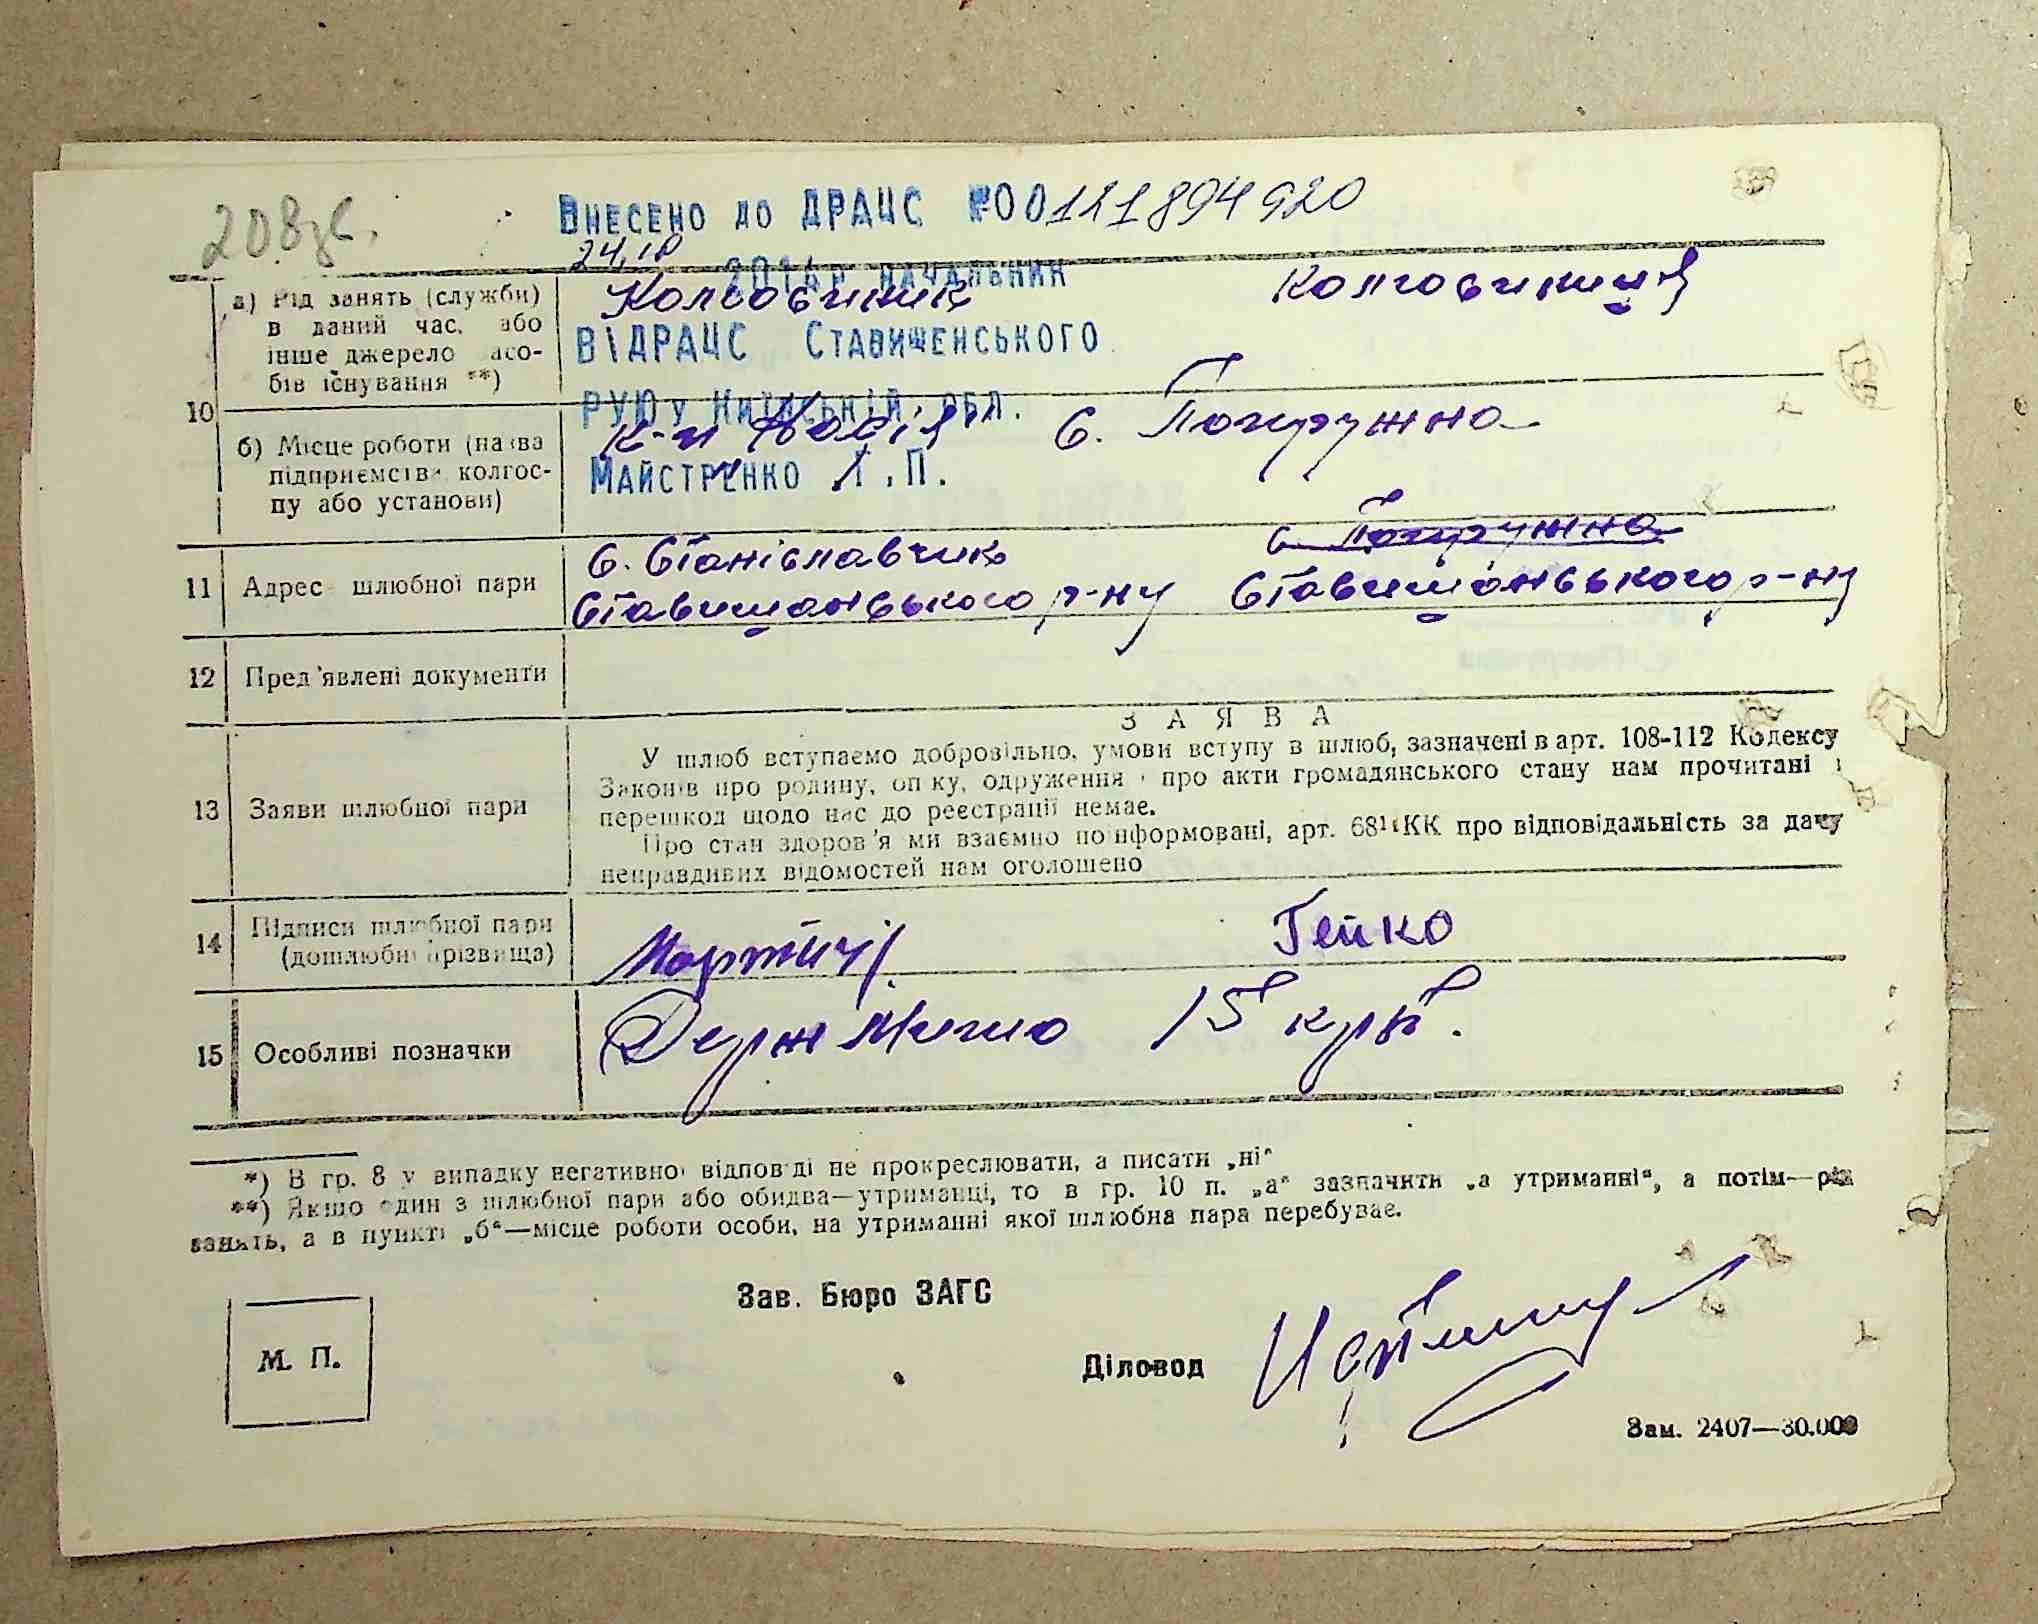 208зв.
Внесено до ДРАЦС №00121894920
24.10
2016р начальник
ВіДРАЦС Ставищенського
РУЮ у Київській обл.
Майстренко Л.П.
10
а) Рід занять (служби)
в даний час, або
інше джерело засо-
бів існування **)
Колгоспник Колгоспниця
б) Місце роботи (назва
підприємства колгос-
пу або установи)
к-п с. Погружна
11 Адрес шлюбної пари
с. Станіславчик с. Погружна
Ставищанського р-ну Ставищанського р-ну
12 Пред'явлені документи
13 Заяви шлюбної пари
ЗАЯВА
У шлюб вступаємо добровільно, умови вступу в шлюб, зазначені в арт. 108-112 Кодексу
Законів про родину, опіку, одруження і про акти громадянського стану нам прочитані і
перешкод щодо нас до реєстрації немає.
Про стан здоров'я ми взаємно поінформовані, арт. 68¹⁴ КК про відповідальність за дачу
неправдивих відомостей нам оголошено
14 Підписи шлюбної пари
(дошлюбні прізвища)
Гейко
15 Особливі позначки
Держ Мито 15 крб.
*) В гр. 8 у випадку негативної відповіді не прокреслювати, а писати „ні“
**) Якщо один з шлюбної пари або обидва—утриманці, то в гр. 10 п. „а“ зазначити „а утриманні“, а потім—рід
занять, а в пункті „б“—місце роботи особи, на утриманні якої шлюбна пара перебуває.
Зав. Бюро ЗАГС
М. П.
Діловод
Зам. 2407—30.000